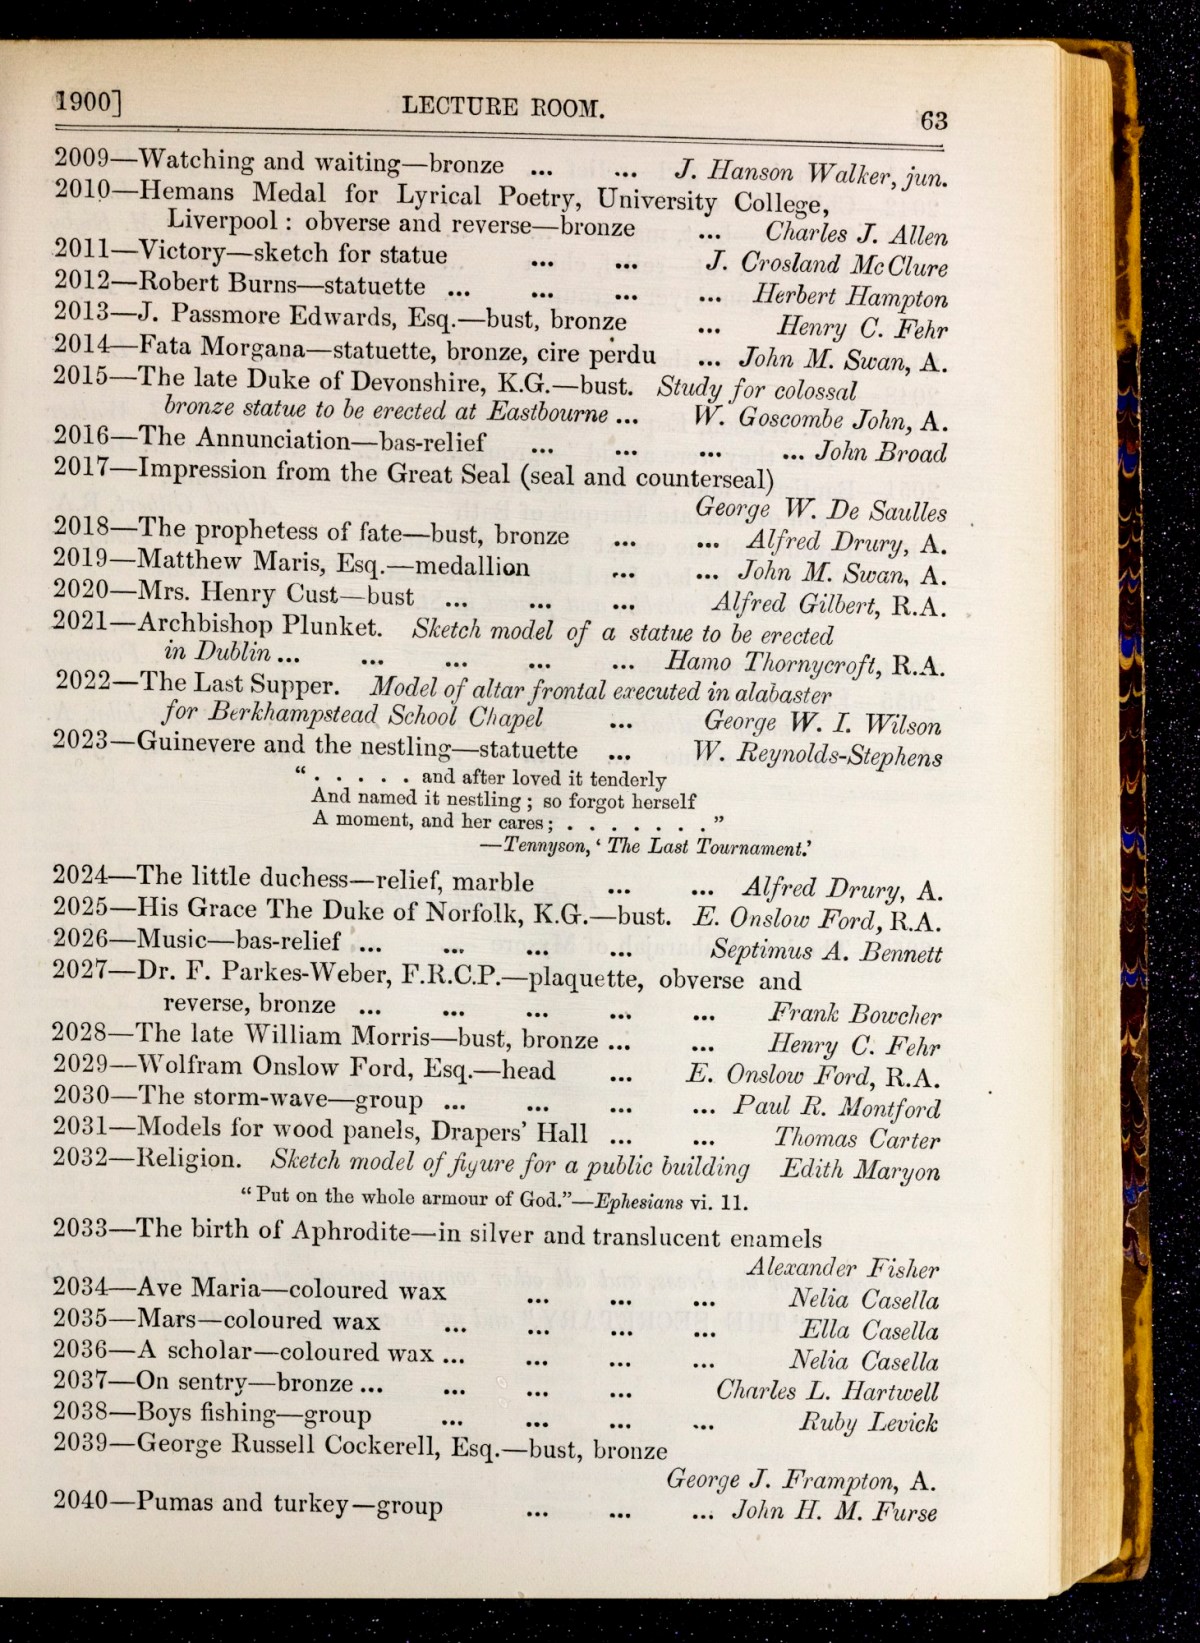 1900] LECTURE ROOM. 63
2009—Watching and waiting—bronze ... ... J. Hanson Walker, jun.
2010—Hemans Medal for Lyrical Poetry, University College,
Liverpool : obverse and reverse—bronze ... Charles J. Allen
2011—Victory—sketch for statue ... ... J. Crosland McClure
2012—Robert Burns—statuette ... ... ... ... Herbert Hampton
2013—J. Passmore Edwards, Esq.—bust, bronze ... Henry C. Fehr
2014—Fata Morgana—statuette, bronze, cire perdu ... John M. Swan, A.
2015—The late Duke of Devonshire, K.G.—bust. Study for colossal
bronze statue to be erected at Eastbourne ... W. Goscombe John, A.
2016—The Annunciation—bas-relief ... ... ... ... John Broad
2017—Impression from the Great Seal (seal and counterseal)
George W. De Saulles
2018—The prophetess of fate—bust, bronze ... ... Alfred Drury, A.
2019—Matthew Maris, Esq.—medallion ... ... John M. Swan, A.
2020—Mrs. Henry Cust—bust ... ... ... Alfred Gilbert, R.A.
2021—Archbishop Plunket. Sketch model of a statue to be erected
in Dublin ... ... ... ... ... Hamo Thornycroft, R.A.
2022—The Last Supper. Model of altar frontal executed in alabaster
for Berkhampstead School Chapel ... George W. I. Wilson
2023—Guinevere and the nestling—statuette ... W. Reynolds-Stephens
“ . . . . . and after loved it tenderly
And named it nestling ; so forgot herself
A moment, and her cares ; . . . . . . . ”
—Tennyson, ‘ The Last Tournament.’
2024—The little duchess—relief, marble ... ... Alfred Drury, A.
2025—His Grace The Duke of Norfolk, K.G.—bust. E. Onslow Ford, R.A.
2026—Music—bas-relief ... ... ... ... Septimus A. Bennett
2027—Dr. F. Parkes-Weber, F.R.C.P.—plaquette, obverse and
reverse, bronze ... ... ... ... ... Frank Bowcher
2028—The late William Morris—bust, bronze ... ... Henry C. Fehr
2029—Wolfram Onslow Ford, Esq.—head ... E. Onslow Ford, R.A.
2030—The storm-wave—group ... ... ... ... Paul R. Montford
2031—Models for wood panels, Drapers’ Hall ... ... Thomas Carter
2032—Religion. Sketch model of figure for a public building Edith Maryon
“ Put on the whole armour of God.”—Ephesians vi. 11.
2033—The birth of Aphrodite—in silver and translucent enamels
Alexander Fisher
2034—Ave Maria—coloured wax ... ... ... Nelia Casella
2035—Mars—coloured wax ... ... ... ... Ella Casella
2036—A scholar—coloured wax ... ... ... ... Nelia Casella
2037—On sentry—bronze ... ... ... ... Charles L. Hartwell
2038—Boys fishing—group ... ... ... ... Ruby Levick
2039—George Russell Cockerell, Esq.—bust, bronze
George J. Frampton, A.
2040—Pumas and turkey—group ... ... ... John H. M. Furse